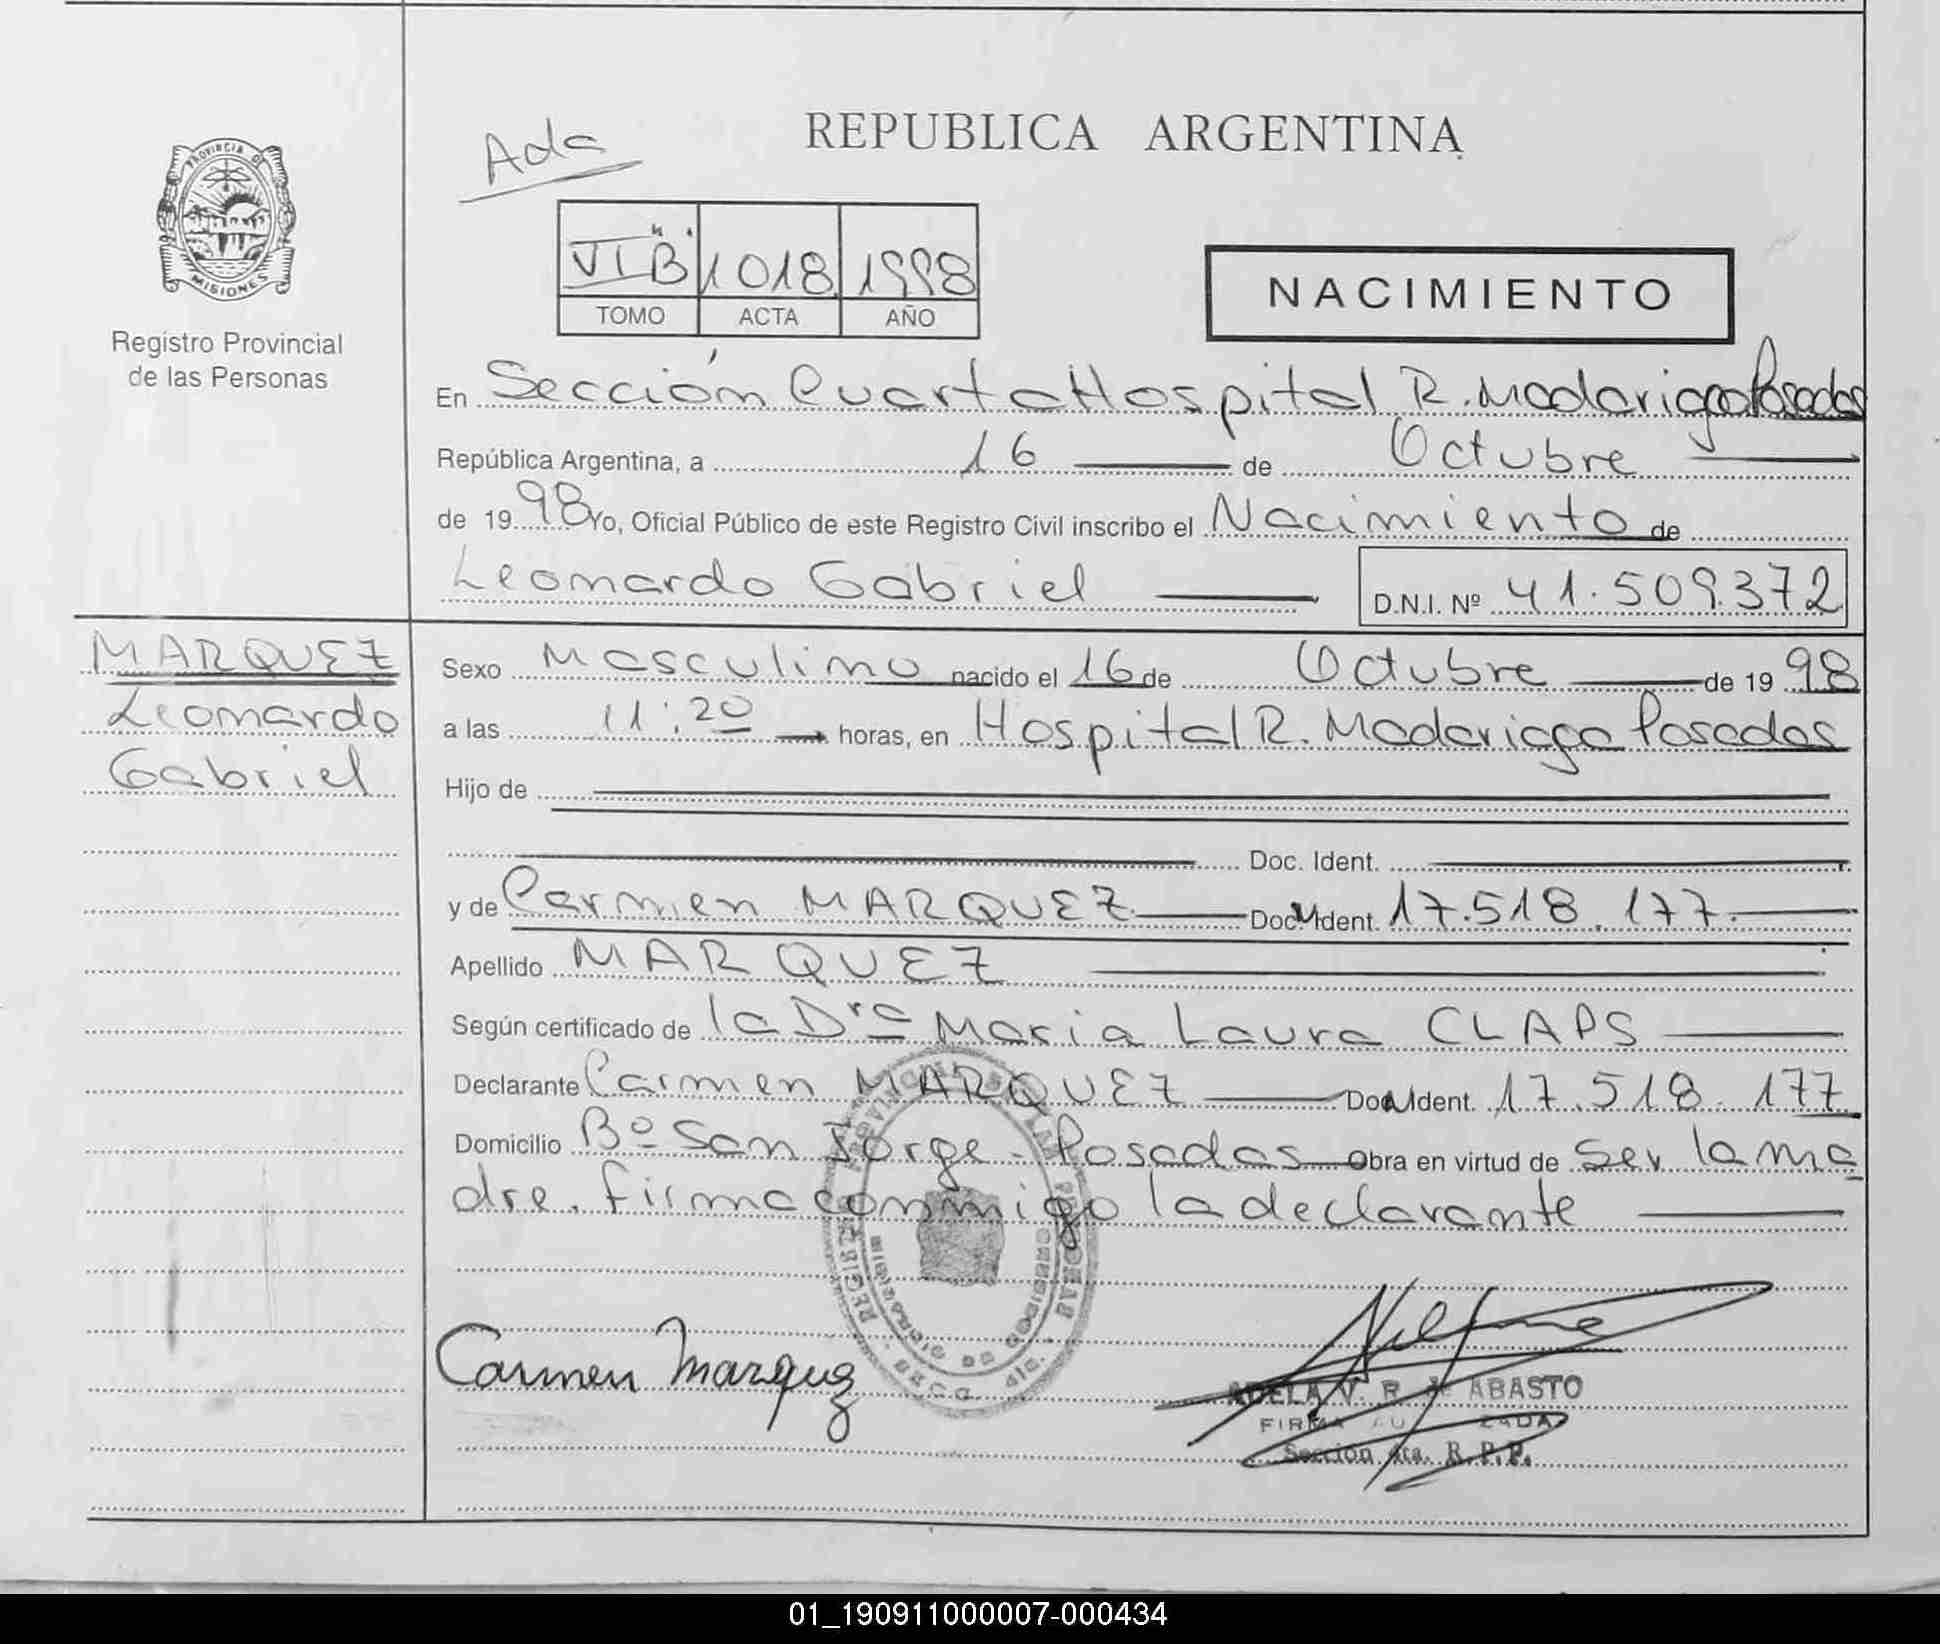 REPUBLICA ARGENTINA
Ada
PROVINCIA D
MISIONES
Registro Provincial
de las Personas
VI "B" 1018 1998
TOMO ACTA AÑO
NACIMIENTO
En Sección Cuarta Hospital R. Madariaga Posadas
República Argentina, a 16 de Octubre
de 19 98 Yo, Oficial Público de este Registro Civil inscribo el Nacimiento de
Leonardo Gabriel D.N.I. Nº 41.509.372
MARQUEZ
Leonardo
Gabriel
Sexo Masculino nacido el 16 de Octubre de 19 98
a las 11:20 horas, en Hospital R. Madariaga Posadas
Hijo de
Doc. Ident.
y de Carmen MARQUEZ Doc. Ident. 17.518.177
Apellido MARQUEZ
Según certificado de la Dra Maria Laura CLAPS
Declarante Carmen MARQUEZ Doc. Ident. 17.518.177
Domicilio Bº San Jorge - Posadas Obra en virtud de Ser la ma
dre. Firma conmigo la declarante
Carmen Marquez
ADELA V. R. de ABASTO
FIRMA AU ZADA
Sección 4ta. R.P.P.
01_190911000007-000434